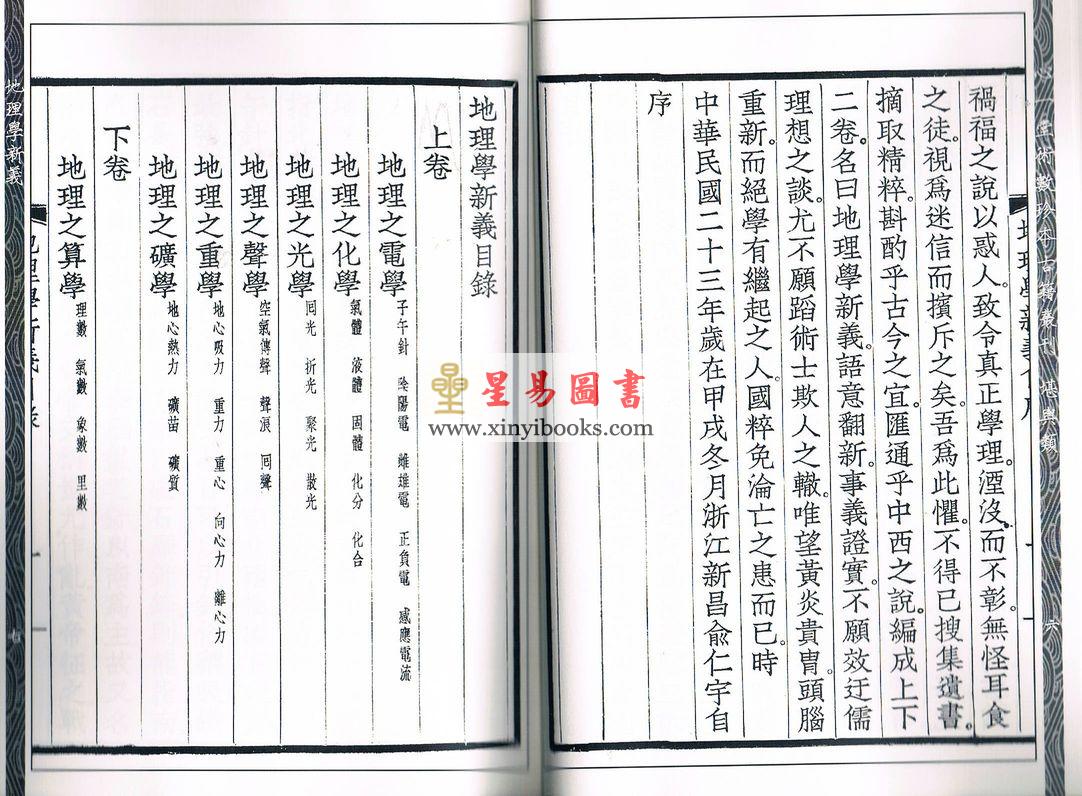 心一堂術數珍本古籍叢刊 堪輿類
六
禍福之說以惑人。致令真正學理湮沒。而不彰。無怪耳食
之徒。視爲迷信而擯斥之矣。吾爲此懼。不得已搜集遺書。
摘取精粹。斟酌乎古今之宜。匯通乎中西之說。編成上下
二卷。名曰地理學新義。語意翻新。事義證實。不願效迂儒
理想之談。尤不願蹈術士欺人之轍。唯望黃炎貴冑。頭腦
重新。而絕學有繼起之人。國粹免淪亡之患而已。時
中華民國二十三年歲在甲戌冬月浙江新昌俞仁宇自
序
地理學新義目錄
上卷
地理之電學 子午針 陰陽電 雌雄電 正負電 感應電流
地理之化學 氣體 液體 固體 化分 化合
地理之光學 回光 折光 聚光 散光
地理之聲學 空氣傳聲 聲浪 回聲
地理之重學 地心吸力 重力 重心 向心力 離心力
地理之礦學 地心熱力 礦苗 礦質
下卷
地理之算學 理數 氣數 象數 里數
地理學新義
星易圖書
www.xinyibooks.com